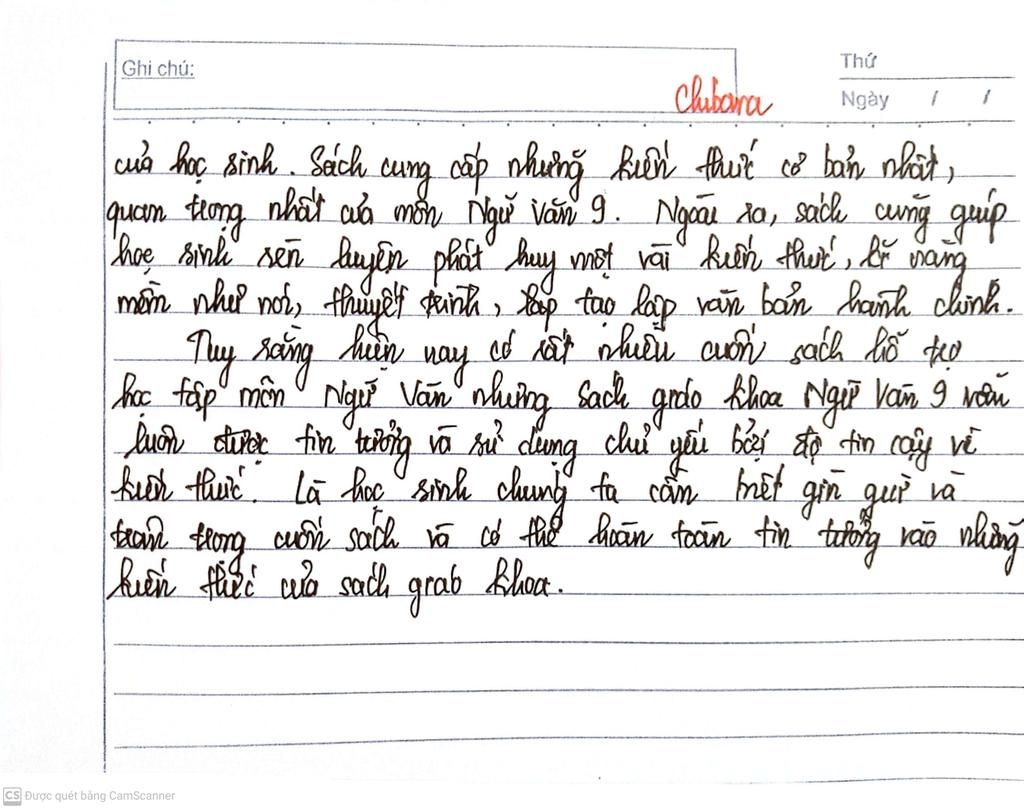 Ghi chú:
Thứ
Chibana
Ngày / /
của học sinh. Sách cung cấp những kiến thức cơ bản nhất,
quan trọng nhất của môn Ngữ Văn 9. Ngoài ra, sách cũng giúp
học sinh rèn luyện phát huy một vài kiến thức, kĩ năng
mềm như nói, thuyết trình, tạo lập văn bản hành chính.
Tuy rằng hiện nay có rất nhiều cuốn sách hỗ trợ
học tập môn Ngữ Văn nhưng sách giáo khoa Ngữ Văn 9 vẫn
luôn được tin tưởng và sử dụng chủ yếu bởi độ tin cậy về
kiến thức. Là học sinh chúng ta cần biết gìn giữ và
trân trọng cuốn sách và có thể hoàn toàn tin tưởng vào những
kiến thức của sách giáo khoa.
CS Được quét bằng CamScanner